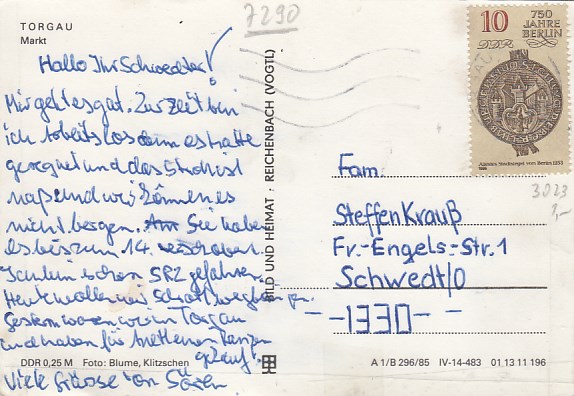 7290
TORGAU
Markt
Hallo Ihr Schwedter!
Mir geht es gut. Zur Zeit bin
ich Arbeitslos denn es hatte
geregnet und das Stroh ist
naß und wir können es
nicht bergen. Sie haben
es bis zum 14. verschoben.
schon SR2 gefahren.
Heute wollen wir
Gestern waren wir in Torgau
und haben für Anett einen Ranzen
gekauft.
Viele Grüsse von Sören
DDR 0,25 M Foto: Blume, Klitzschen
BILD UND HEIMAT · REICHENBACH (VOGTL)
10
DDR
750
JAHRE
BERLIN
Ältestes Stadtsiegel von Berlin 1253
1986
3023
1,-
Fam.
Steffen Krauß
Fr.-Engels-Str. 1
Schwedt/O
--1330--
A 1/B 296/85 IV-14-483 01 13 11 196